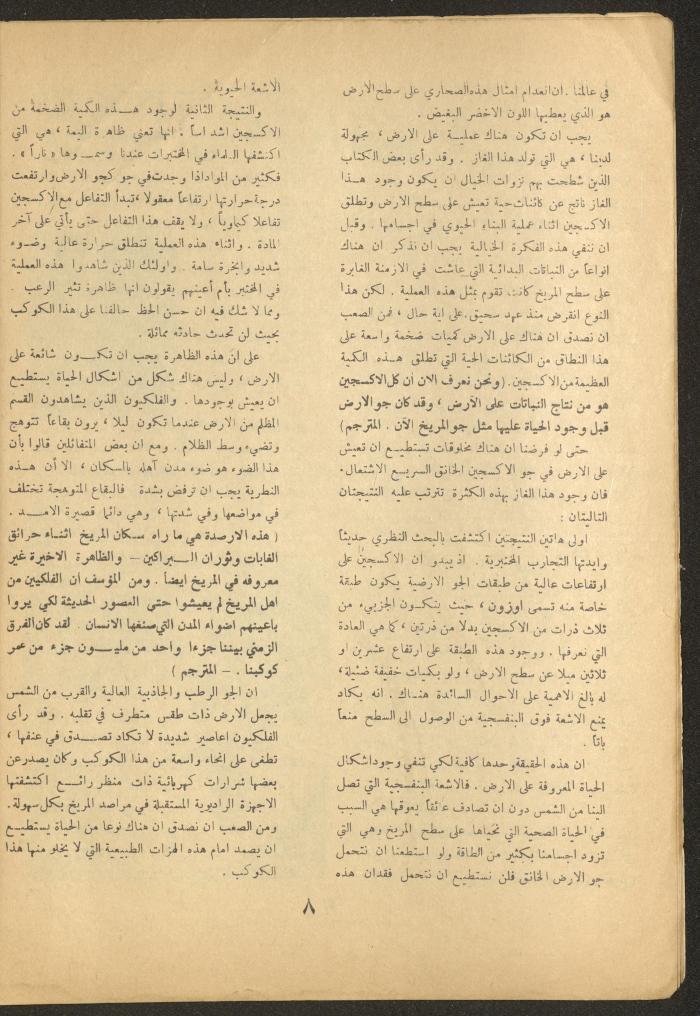 في عالمنا . ان انعدام امثال هذه الصحاري على سطح الارض
هو الذي يعطيها اللون الاخضر البغيض .
يجب ان تكون هناك عملية على الارض ، مجهولة
لدينا ، هي التي تولد هذا الغاز . وقد رأى بعض الكتاب
الذين شطحت بهم نزوات الخيال ان يكون وجود هذا
الغاز ناتج عن كائنات حية تعيش على سطح الارض وتطلق
الاكسجين اثناء عملية البناء الحيوي في اجسامها . وقبل
ان ننفي هذه الفكرة الخيالية يجب ان نذكر ان هناك
انواعاً من النباتات البدائية التي عاشت في الازمنة الغابرة
على سطح المريخ كانت تقوم بمثل هذه العملية . لكن هذا
النوع انقرض منذ عهد سحيق . على اية حال ، فمن الصعب
ان نصدق ان هناك على الارض كميات ضخمة واسعة على
هذا النطاق من الكائنات الحية التي تطلق هذه الكمية
العظيمة من الاكسجين . (ونحن نعرف الان ان كل الاكسجين
هو من نتاج النباتات على الارض ، وقد كان جو الارض
قبل وجود الحياة عليها مثل جو المريخ الآن . المترجم)
حتى لو فرضنا ان هناك مخلوقات تستطيع ان تعيش
على الارض في جو الاكسجين الخانق السريع الاشتعال .
فان وجود هذا الغاز بهذه الكثرة تترتب عليه النتيجتان
التاليتان :
اولى هاتين النتيجتين اكتشفت بالبحث النظري حديثاً
وايدتها التجارب المختبرية . اذ يبدو ان الاكسجين على
ارتفاعات عالية من طبقات الجو الارضية يكون طبقة
خاصة منه تسمى اوزون ، حيث يتكون الجزيء من
ثلاث ذرات من الاكسجين بدلا من ذرتين ، كما هي العادة
التي نعرفها . ووجود هذه الطبقة على ارتفاع عشرين او
ثلاثين ميلا عن سطح الارض ، ولو بكميات خفيفة ضئيلة،
له بالغ الاهمية على الاحوال السائدة هناك . انه يكاد
يمنع الاشعة فوق البنفسجية من الوصول الى السطح منعاً
باتاً .
ان هذه الحقيقة وحدها كافية لكي تنفي وجود اشكال
الحياة المعروفة على الارض . فالاشعة البنفسجية التي تصل
الينا من الشمس دون ان تصادف عائقاً يعوقها هي السبب
في الحياة الصحية التي نحياها على سطح المريخ وهي التي
تزود اجسامنا بكثير من الطاقة ولو استطعنا ان نتحمل
جو الارض الخانق فلن نستطيع ان نتحمل فقدان هذه
الاشعة الحيوية .
والنتيجة الثانية لوجود هذه الكمية الضخمة من
الاكسجين اشد اساً . انها تعني ظاهرة اليمة ، هي التي
اكتشفها العلماء في المختبرات عندنا وسموها « ناراً » .
فكثير من المواد اذا وجدت في جو كجو الارض وارتفعت
درجة حرارتها ارتفاعاً معقولا ، تبدأ التفاعل مع الاكسجين
تفاعلا كيماوياً ، ولا يقف هذا التفاعل حتى يأتي على آخر
المادة . واثناء هذه العملية تنطلق حرارة عالية وضوء
شديد وابخرة سامة . واولئك الذين شاهدوا هذه العملية
في المختبر بأم أعينهم يقولون انها ظاهرة تثير الرعب .
ومما لا شك فيه ان حسن الحظ حالفنا على هذا الكوكب
بحيث لن تحدث حادثه مماثلة .
على ان هذه الظاهرة يجب ان تكون شائعة على
الارض ، وليس هناك شكل من اشكال الحياة يستطيع
ان يعيش بوجودها . والفلكيون الذين يشاهدون القسم
المظلم من الارض عندما تكون ليلا ، يرون بقاعاً تتوهج
وتضيء وسط الظلام . ومع ان بعض المتفائلين قالوا بأن
هذا الضوء هو ضوء مدن آهله بالسكان ، الا أن هذه
النظرية يجب ان ترفض بشدة فالبقاع المتوهجة تختلف
في مواضعها وفي شدتها ، وهي دائما قصيرة الامد .
( هذه الارصدة هي ما راه سكان المريخ اثناء حرائق
الغابات وثوران البراكين – والظاهرة الاخيرة غير
معروفه في المريخ ايضاً . ومن المؤسف ان الفلكيين من
اهل المريخ لم يعيشوا حتى العصور الحديثة لكي يروا
باعينهم اضواء المدن التي صنغها الانسان . لقد كان الفرق
الزمني بيننا جزءا واحد من مليون جزء من عمر
كوكبنا . – المترجم )
ان الجو الرطب والجاذبية العالية والقرب من الشمس
يجعل الارض ذات طقس متطرف في تقلبه . وقد رأى
الفلكيون اعاصير شديدة لا تكاد تصدق في عنفها ،
تطغى على انحاء واسعة من هذا الكوكب وكان يصدر عن
بعضها شرارات كهربائية ذات منظر رائع اكتشفتها
الاجهزة الراديوية المستقبلة في مراصد المريخ بكل سهولة .
ومن الصعب ان نصدق ان هناك نوعا من الحياة يستطيع
ان يصمد امام هذه الهزات الطبيعية التي لا يخلو منها هذا
الكوكب .
٨